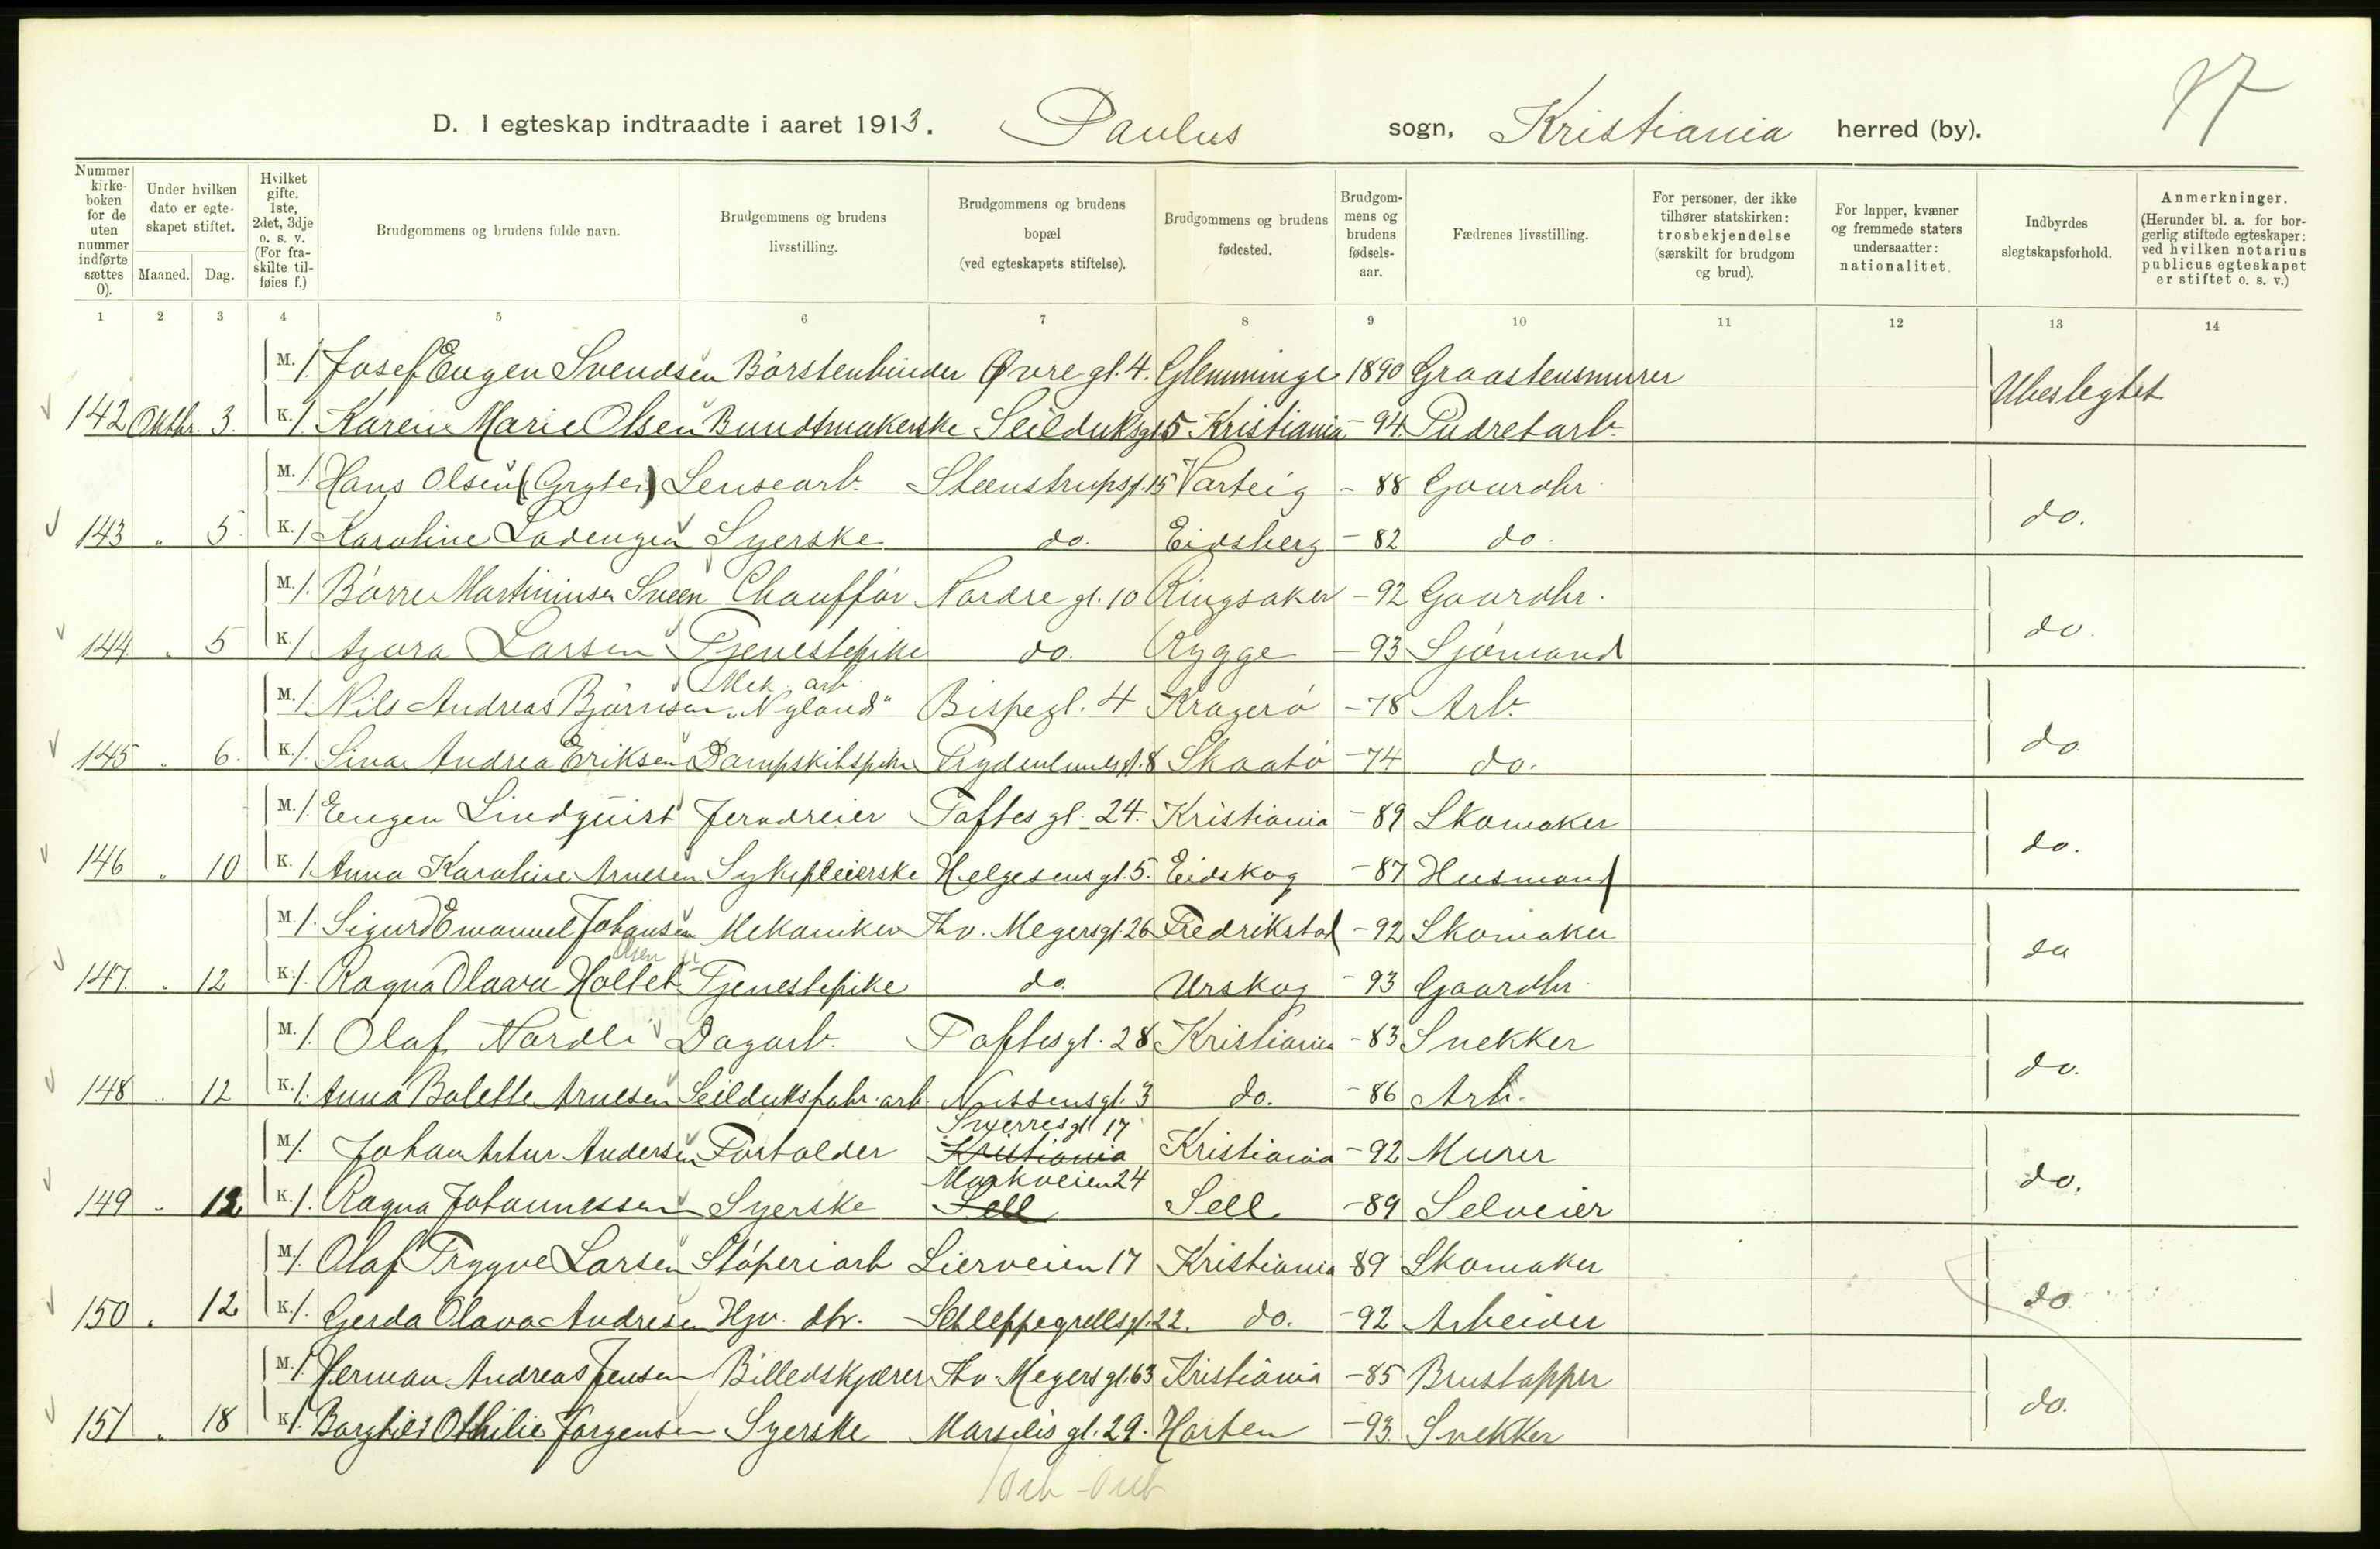 17
D. I egteskap indtraadte i aaret 1913. Paulus sogn, Kristiania herred (by).
Nummer i kirkeboken for de uten nummer indførte sættes 0).
Under hvilken dato er egteskapet stiftet. Maaned. Dag.
Hvilket gifte. 1ste, 2det, 3dje o. s. v. (For fraskilte tilføies f.)
Brudgommens og brudens fulde navn.
Brudgommens og brudens livsstilling.
Brudgommens og brudens bopæl (ved egteskapets stiftelse).
Brudgommens og brudens fødested.
Brudgommens og brudens fødselsaar.
Fædrenes livsstilling.
For personer, der ikke tilhører statskirken: trosbekjendelse (særskilt for brudgom og brud).
For lapper, kvæner og fremmede staters undersaatter: nationalitet.
Indbyrdes slegtskapsforhold.
Anmerkninger. (Herunder bl. a. for borgerlig stiftede egteskaper: ved hvilken notarius publicus egteskapet er stiftet o. s. v.)
1 2 3 4 5 6 7 8 9 10 11 12 13 14
M. 1. Josef Eugen Svendsen Börstenbinder Øvre gt. 4. Glemminge 1890 Graastensmurer Ubeslegtet
142 Oktbr. 3. K. 1. Karen Marie Olsen Bundtmakerske Seilduksgt. 5 Kristiania - 94. Pudretarb.
M. 1. Hans Olsen (Gryter) Lensearb. Steenstrupsgt. 15 Varteig - 88 Gaardbr.
143 " 5. K. 1 Karoline Ladengen Syerske do. Eidsberg - 82 do. do.
M. 1. Börre Martiniusen Sveen Chaufför Nordre gt. 10 Ringsaker - 92 Gaardbr.
144 " 5 K. 1. Azora Larsen Tjenestepike do. Rygge - 93 Sjömand do.
Mek. arb
M. 1. Nils Andreas Björnsen "Nyland" Bispegt. 4 Kragerö - 78 Arb.
145 " 6. K. 1. Sina Andrea Eriksen Dampskibspike Frydenlundsgt. 8 Skaatö - 74 do. do.
M. 1. Eugen Lindquist Jerndreier Toftes gt. 24. Kristiania - 89 Skomaker
146 " 10 K. 1. Anna Karoline Arnesen Sykepleierske Helgesens gt. 5. Eidskog - 87 Husmand do.
M. 1. Sigurd Emanuel Johansen Mekaniker Thv. Meyersgt. 26 Fredrikstad - 92 Skomaker
Olsen
147. " 12 K. 1. Ragna Olava Holtet Tjenestepike do. Urskog - 93 Gaardbr. do
M. 1. Olaf Nordli Dagarb. Toftesgt. 28 Kristiania - 83 Snekker
148 " 12 K. 1. Anna Bolette Arnesen Seilduksfabr. arb. Nissensgt. 3 do. - 86 Arb. do.
Sverresgt. 17
M. 1. Johan Artur Andersen Forholder Kristiania Kristiania - 92 Murer
Markveien 24
149 " 12 K. 1. Ragna Johannessen Syerske Sell Sell - 89 Selveier do.
M. 1. Olaf Trygve Larsen Stöperiarb Lierveien 17 Kristiania 89 Skomaker
150 " 12 K. 1. Gerda Olava Andresen Hjv. dtr. Schleppegrellsgt. 22. do. - 92 Arbeider do.
M. 1. Herman Andreas Jensen Billedskjærer Thv. Meyers gt. 63 Kristiania - 85 Brustapper
151 " 18 K. 1. Borghild Othilie Jörgensen Syerske Marselis gt. 29. Horten - 93. Snekker do.